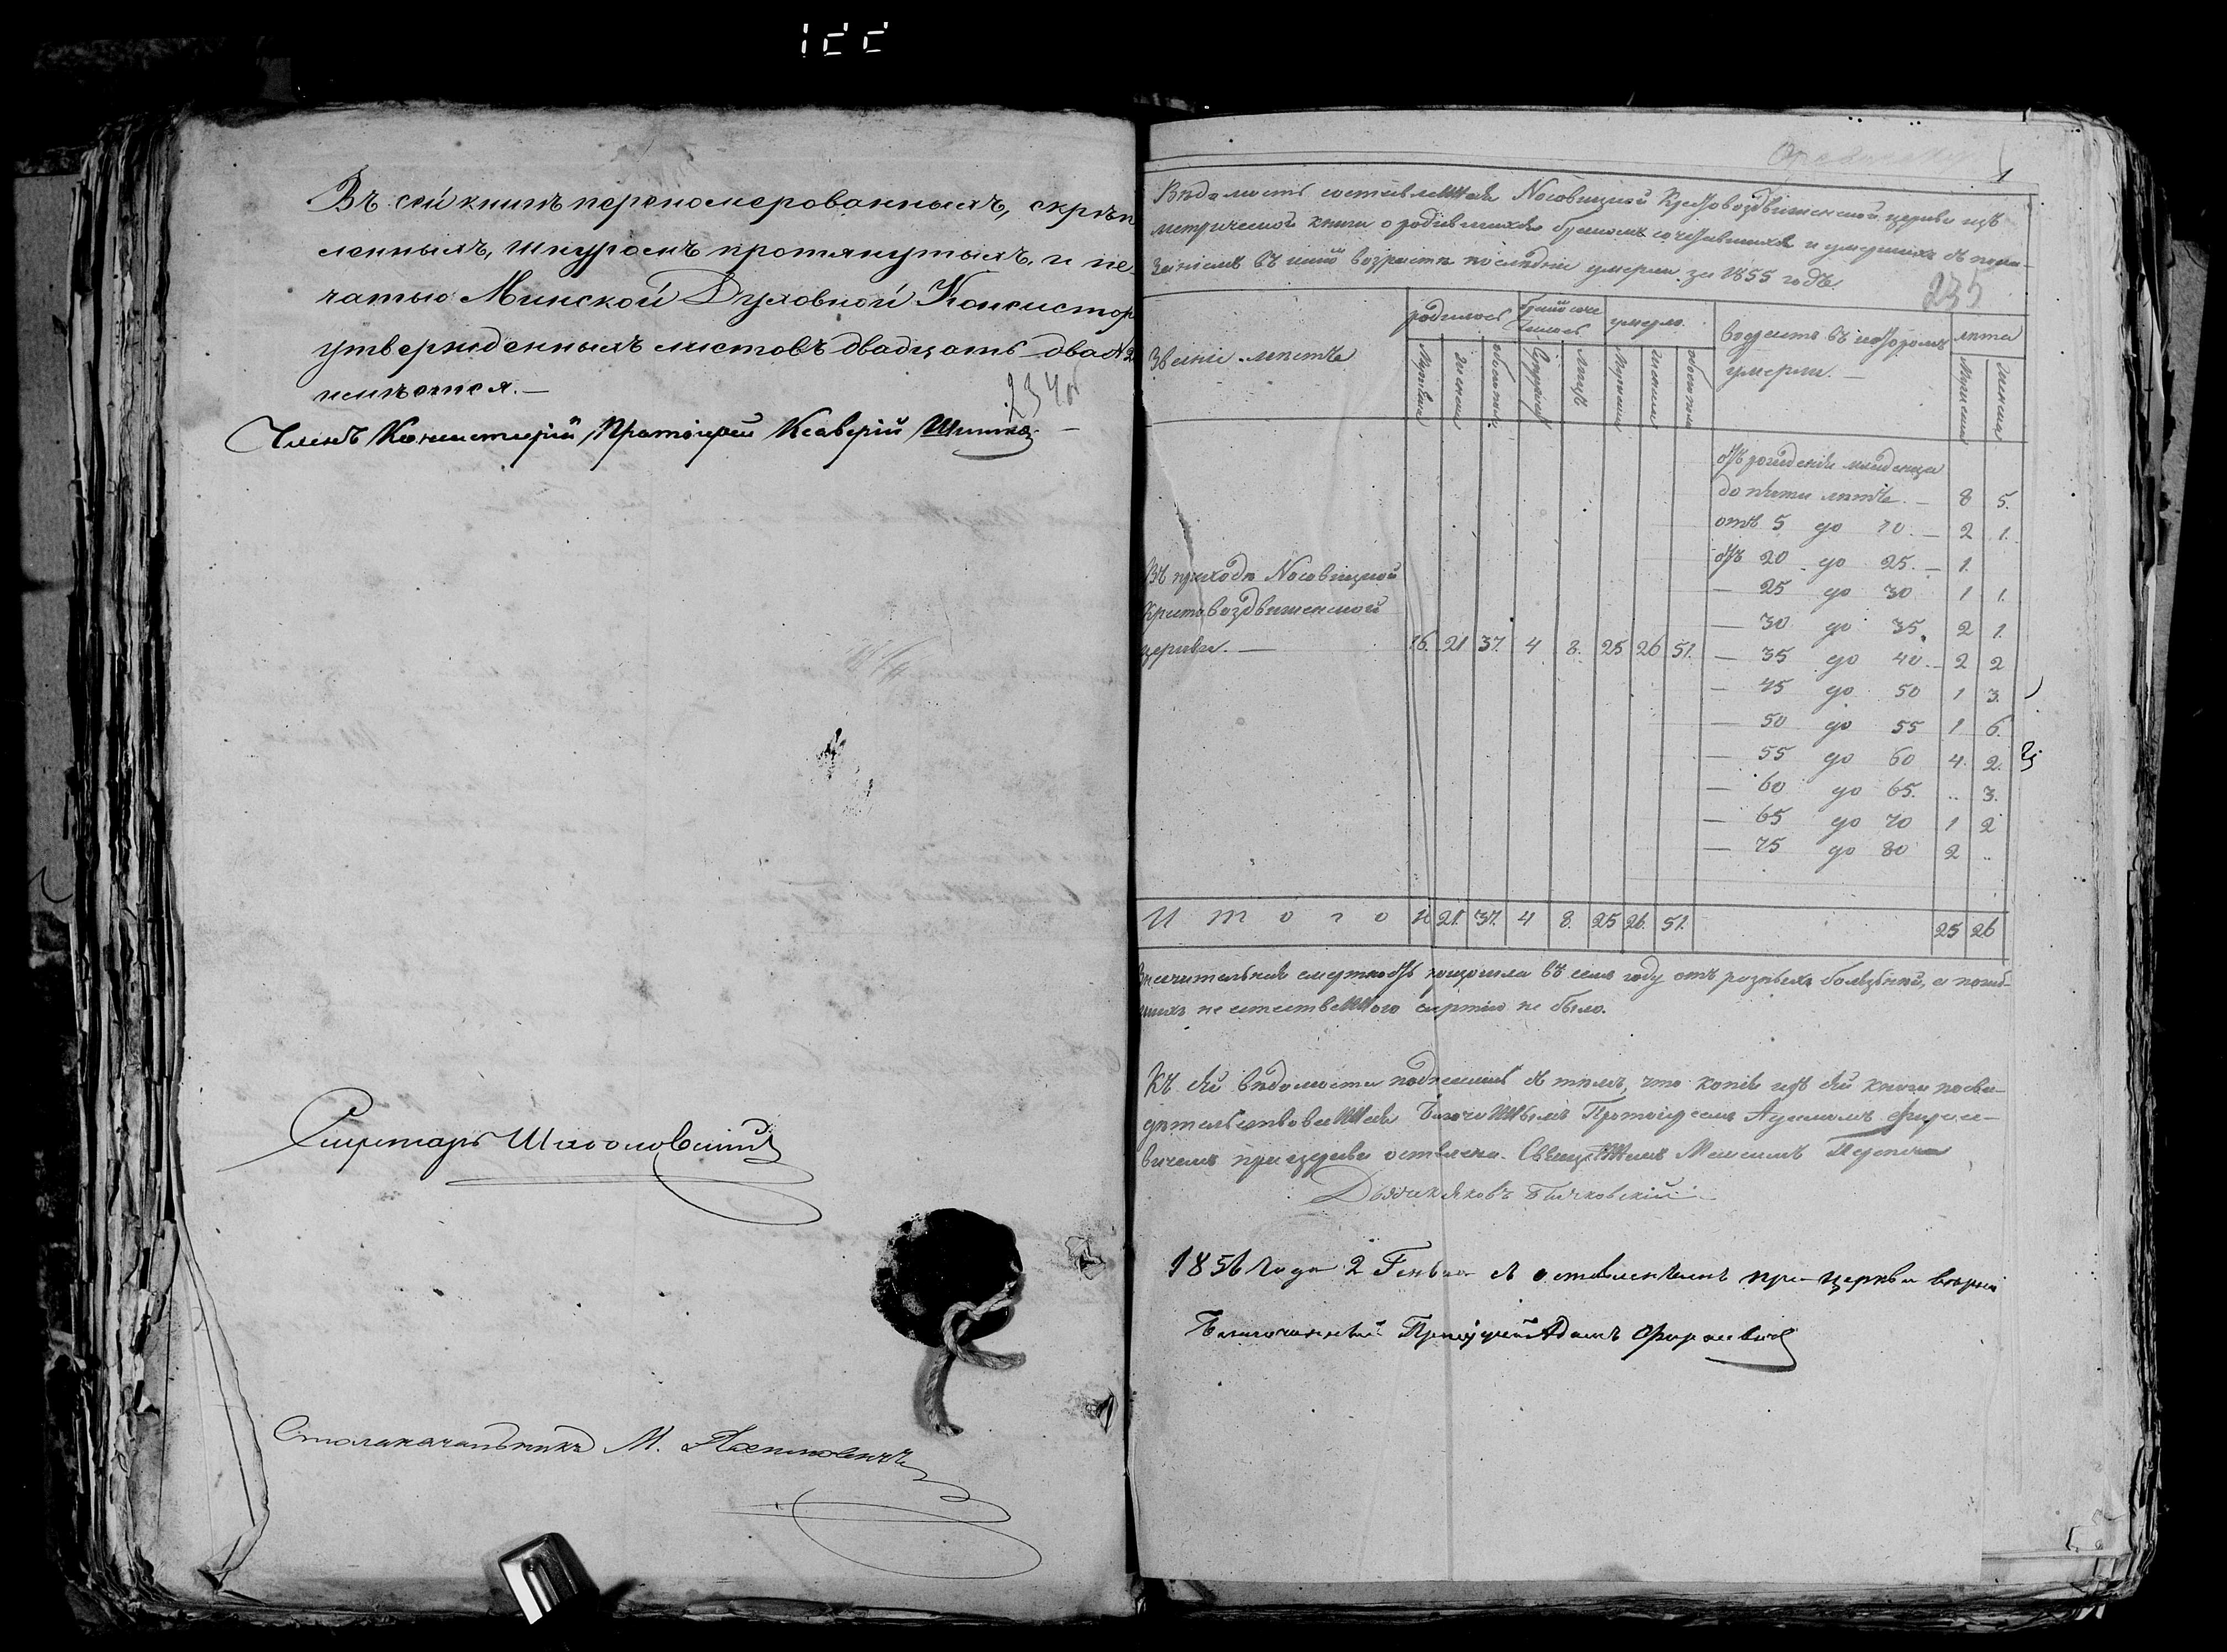 Въ сей книгѣ перенумерованныхъ, скрѣп
ленныхъ, шнуромъ протянутыхъ, и пе
чатью Минской Духовной Консистор
утвержденныхъ листовъ двадцать два 22
имѣется.—
234об
Членъ Консисторіи Протоіерей Ксаверій
Секретарь
Столоначальникъ М.
1
Вѣдомость составленная Носовицкой Крестовоздвиженской церкви изъ
метрической книги о родившихся бракомъ сочетавшихся и умершихъ съ пока-
заніемъ въ какой возрастѣ послѣдніе умерли за 1855 годъ.
235
Званіе мѣстъ
родилось
бракомъ соче
талось
умерло.
возрастъ въ которомъ
умерли.—
лѣта
Мужеска
Женска
обоего пола
Супружествъ
Лицъ
Мужеска
Женска
обоего пола
Мужеска
Женска
отъ рожденія младенца
до пяти лѣтъ — 8 5.
отъ 5 до 10.— 2 1.
отъ 20 до 25.— 1.
— 25 до 30 1 1.
— 30 до 35. 2 1.
— 35 до 40.— 2 2
— 45 до 50 1 3.
— 50 до 55 1 6.
— 55 до 60 4. 2.
— 60 до 65. .. 3.
— 65 до 70 1 2
— 75 до 80 2 ..
Въ приходѣ Носовицкой
Крестовоздвиженской
церкви.— 16. 21 37. 4 8. 25 26 51.
Итого 16 21. 37. 4 8. 25 26. 51. 25 26
Значительная смертность произошла въ семъ году отъ разныхъ болѣзней, а погиб-
шихъ не естественною смертію не было.
Къ сей вѣдомости подписался съ тѣмъ, что копія изъ сей книги посви-
дѣтельствованная Благочиннымъ Протоіереемъ Адамомъ Фирсе-
вичемъ при церкви оставлена. Священникъ Максимъ
Дьячекъ Яковъ Бычковскій
1856 года 2 Генваря съ оставленнымъ при церкви вѣрно
Благочинный Протоіерей Адамъ